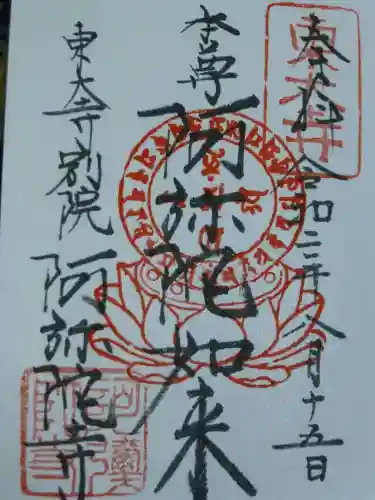 奉拝
令和三年八月十五日
本尊
阿弥陀如来
東大寺別院
阿弥陀寺